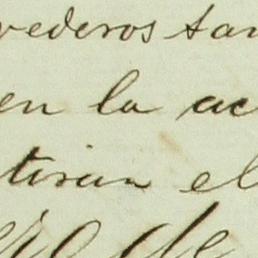 vederos tan
en la ac
tiran el
de